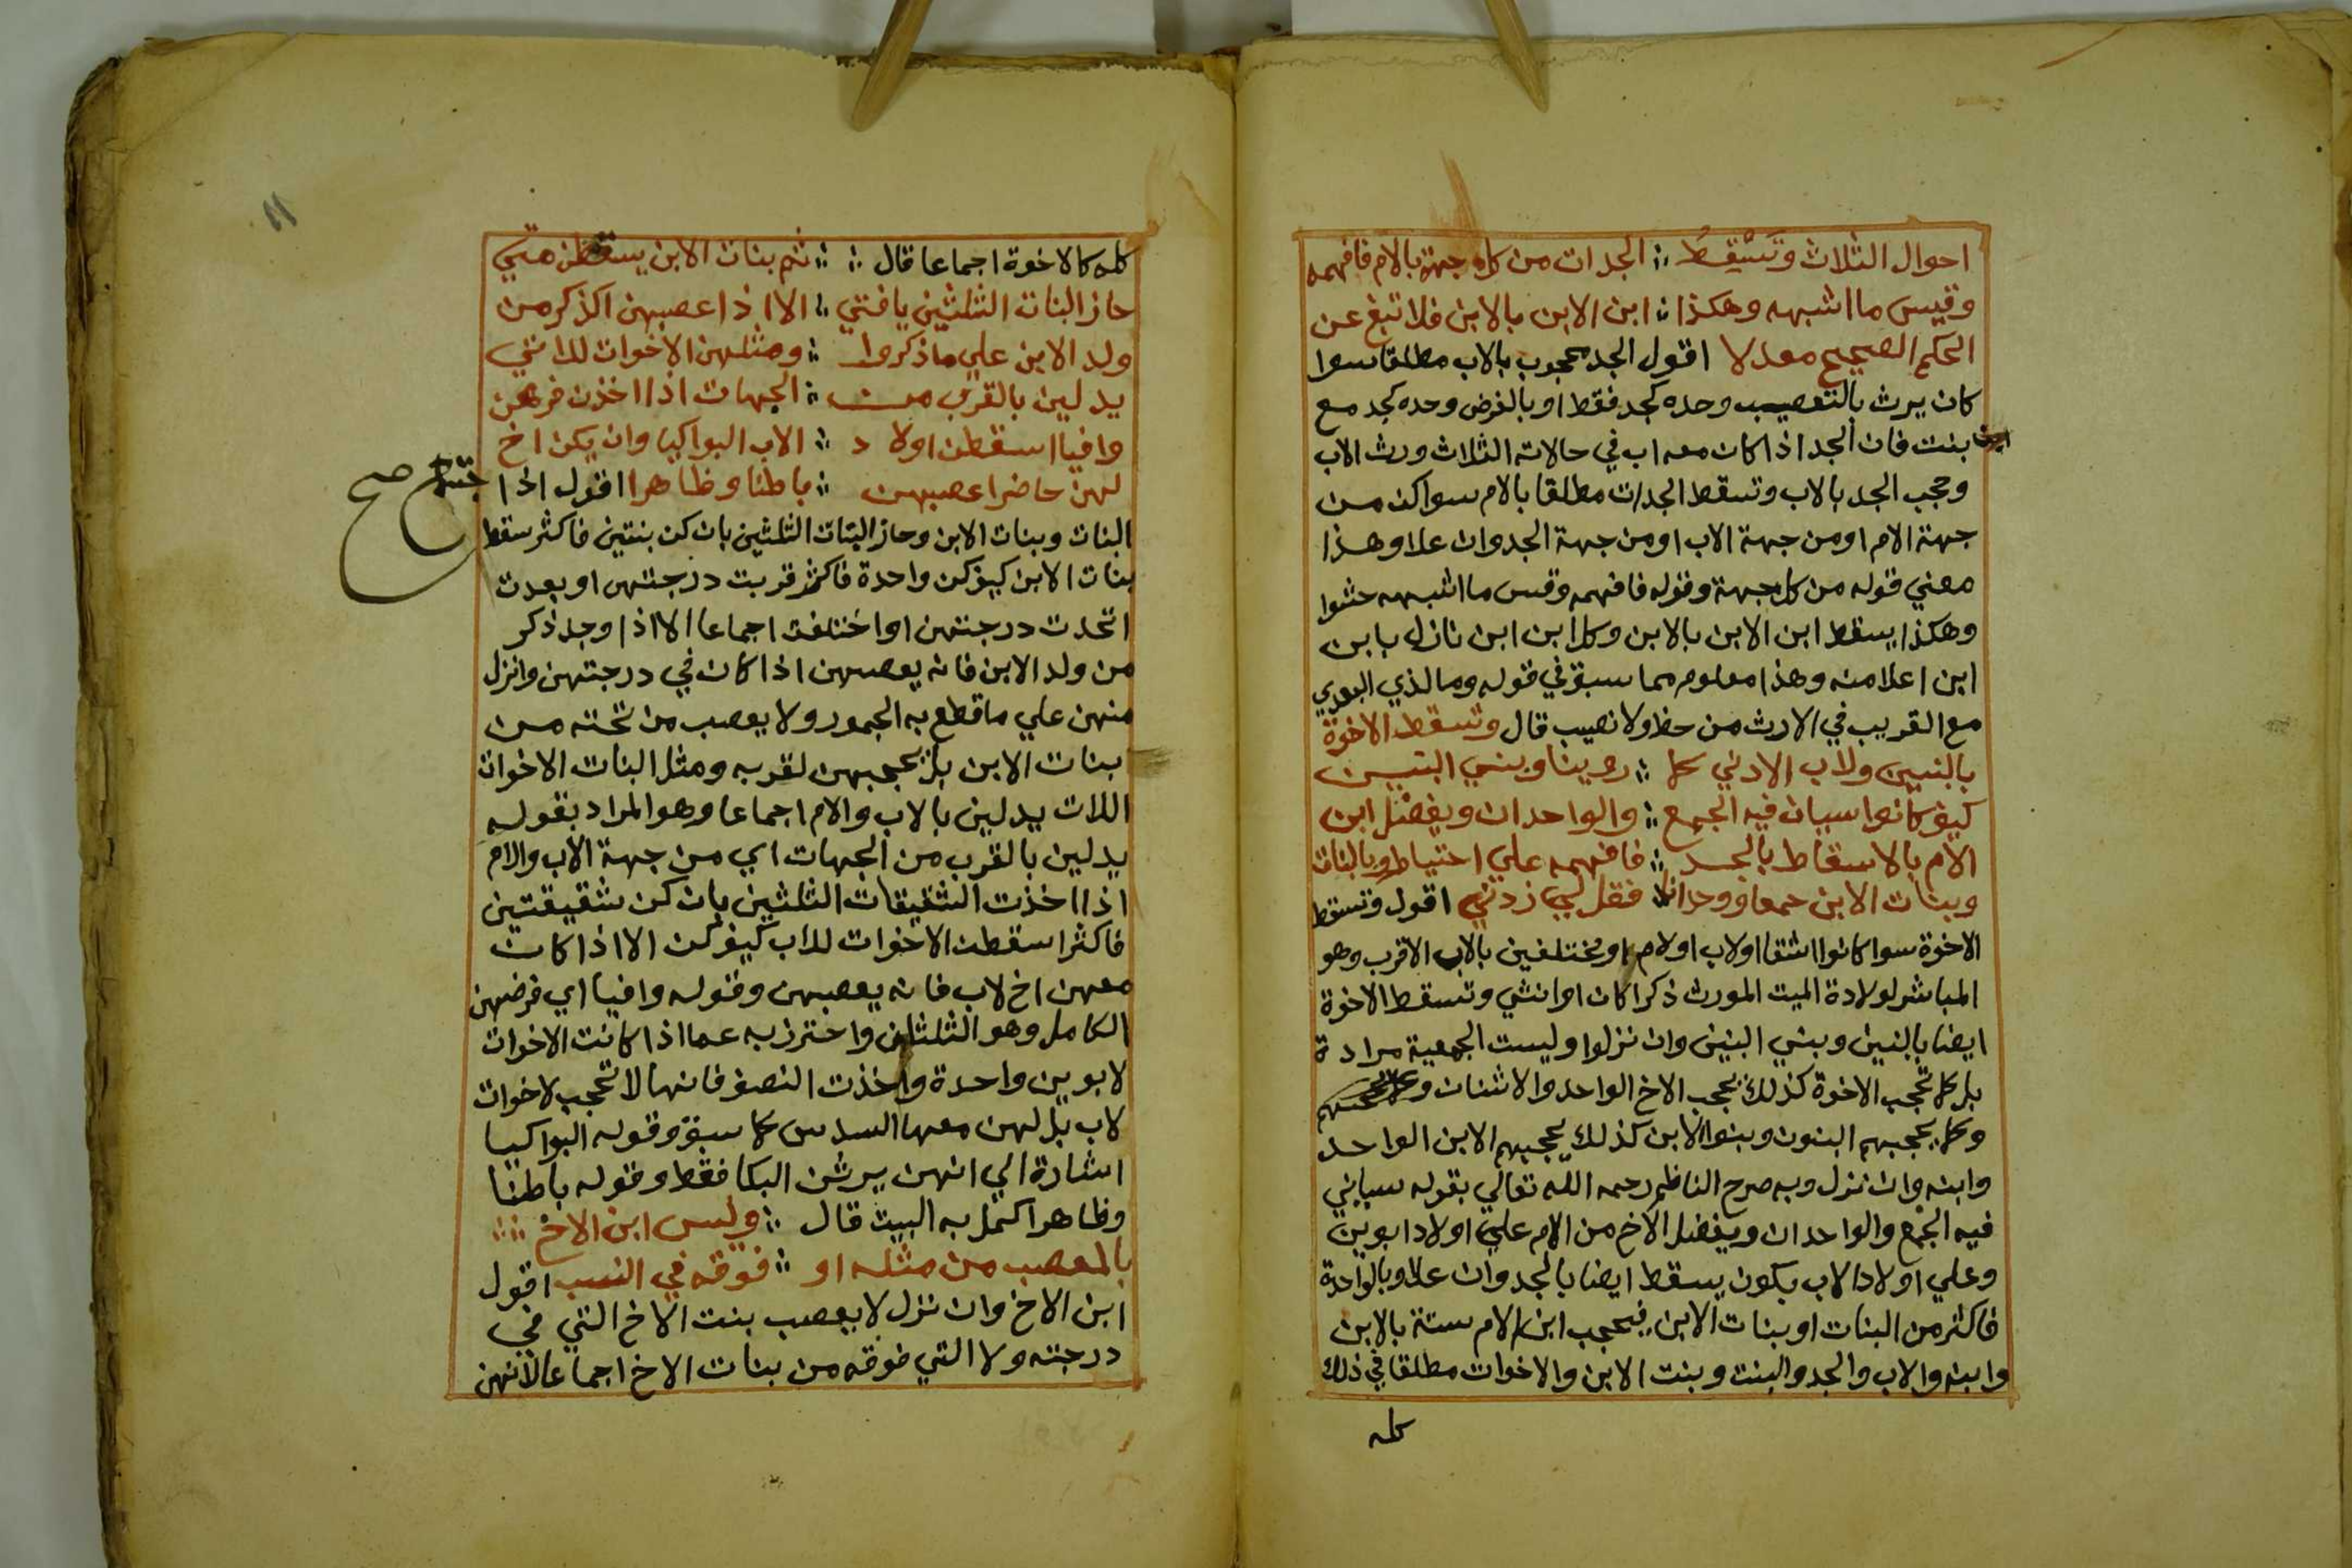 احوال الثلاث وتَسْقِطُ ؞ الجدات من كل جهة بالام فافهمه
وقيس ما اشبهه وهكذا ؞ ابن الابن بالابن فلا تبغ عن
الحكم الصحيح معدلا اقول الجد محجوب بالاب مطلقا سوا
كان يرث بالتعصيب وحده كجد فقط او بالفرض وحده كجد مع
بنت فان الجد اذا كان معه اب في حالاته الثلاث ورث الاب
وحجب الجد بالاب وتسقط الجدات مطلقا بالام سوا كن من
جهة الام او من جهة الاب او من جهة الجد وان علا وهذا
معني قوله من كل جهة وقوله فافهمه وقس ما اشبهه حشوا
وهكذا يسقط ابن الابن بالابن وكل ابن ابن نازل بابن
ابن اعلا منه وهذا معلوم مما سبق في قوله وما لذي البعدي
مع القريب في الارث من حظ ولا نصيب قال وتسقط الاخوة
بالبنين ولاب الادني كما ؞ روينا وبني البنين
كيف كانوا سيان فيه الجمع ؞ والواحدان ويفضل ابن
الام بالاسقاط بالجد ؞ فافهمه علي احتياط وبالبنات
وبنات الابن جمعا ووحدانا فقل لي زدني اقول وتسقط
الاخوة سوا كانوا اشقا او لاب او لام او مختلفين بالاب الاقرب وهو
المباشر لولادة الميت المورث ذكرا كان او انثي وتسقط الاخوة
ايضا بالبنين وبني البنين وان نزلوا وليست الجمعية مرادة
بل كما تحجب الاخوة كذلك يحجب الاخ الواحد والاثنان
وكما يحجبهم البنون وبنوا الابن كذلك يحجبهم الابن الواحد
وابنه وان نزل وبه صرح الناظم رحمه الله تعالي بقوله سياني
فيه الجمع والواحدان ويفضل الاخ من الام علي اولاد ابوين
وعلي اولاد الاب بكون يسقط ايضا بالجد وان علا وبالواحدة
فاكثر من البنات او بنات الابن فيحجب ابن الام ستة بالابن
وابنه والاب والجد والبنت وبنت الابن والاخوات مطلقا في ذلك
كله
كله كالاخوة اجماعا قال ؞ ؞ ثم بنات الابن يسقطن متي
حاز البنات الثلثين يا فتي ؞ الا اذا عصبهن الذكر من
ولد الابن علي ما ذكروا ؞ ومثلهن الاخوات للاتي
يدلين بالقرب من ؞ الجهات اذا اخذن فرضهن
وافيا اسقطن اولاد ؞ الاب البواكيا وان يكن اخ
لهن حاضرا عصبهن ؞ باطنا وظاهرا اقول اذا
اجتمع صح
البنات وبنات الابن وحاز البنات الثلثين بان كن بنتين فاكثر سقط
بنات الابن كيف كن واحدة فاكثر قربت درجتهن او بعدت
اتحدت درجتهن او اختلفت اجماعا الا اذا وجد ذكر
من ولد الابن فانه يعصبهن اذا كان في درجتهن وانزل
منهن علي ما قطع به الجمهور ولا يعصب من تحته من
بنات الابن بل يحجبهن لقربه ومثل البنات الاخوات
اللات يدلين بالاب والام اجماعا وهو المراد بقوله
يدلين بالقرب من الجهات اي من جهة الاب والام
اذا اخذت الشقيقات الثلثين بان كن شقيقتين
فاكثر اسقطن الاخوات للاب كيف كن الا اذا كان
معهن اخ لاب فانه يعصبهن وقوله وافيا اي فرضهن
الكامل وهو الثلثان واحترز به عما اذا كانت الاخوات
لابوين واحدة واخذت النصف فانها لا تحجب لاخوات
لاب بل لهن معها السدس كما سبق وقوله البواكيا
اشارة الي انهن يرثن البكا فقط وقوله باطنا
وظاهرا كمل به البيت قال ؞ وليس ابن الاخ ؞؞
بالمعصب من مثله او ؞ فوقه في النسب اقول
ابن الاخ وان نزل لا يعصب بنت الاخ التي في
درجته ولا التي فوقه من بنات الاخ اجماعا لانهن